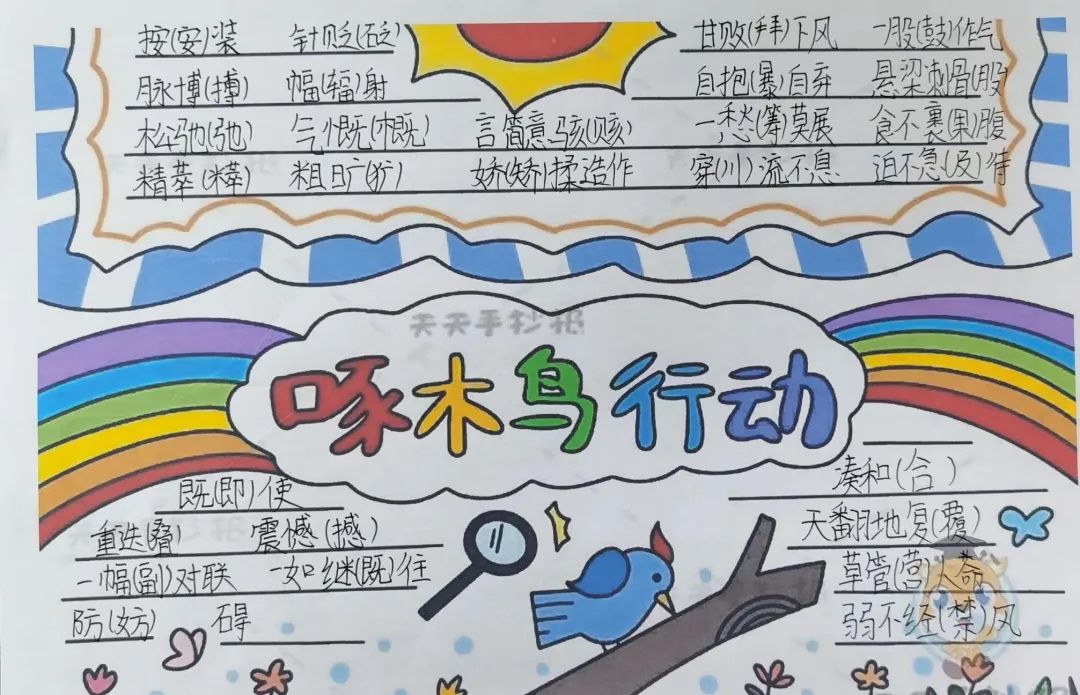 按(安)装 针贬(砭) 甘败(拜)下风 一股(鼓)作气
脉博(搏) 幅(辐)射 自抱(暴)自弃 悬梁刺骨(股)
松驰(弛) 气慨(概) 言简意骇(赅) 一愁(筹)莫展 食不裹(果)腹
精萃(粹) 粗旷(犷) 娇(矫)揉造作 穿(川)流不息 迫不急(及)待
天天手抄报
啄木鸟行动
既(即)使
重迭(叠) 震憾(撼)
一幅(副)对联 一如继(既)往
防(妨)碍
凑和(合)
天翻地复(覆)
草管(菅)人命
弱不经(禁)风